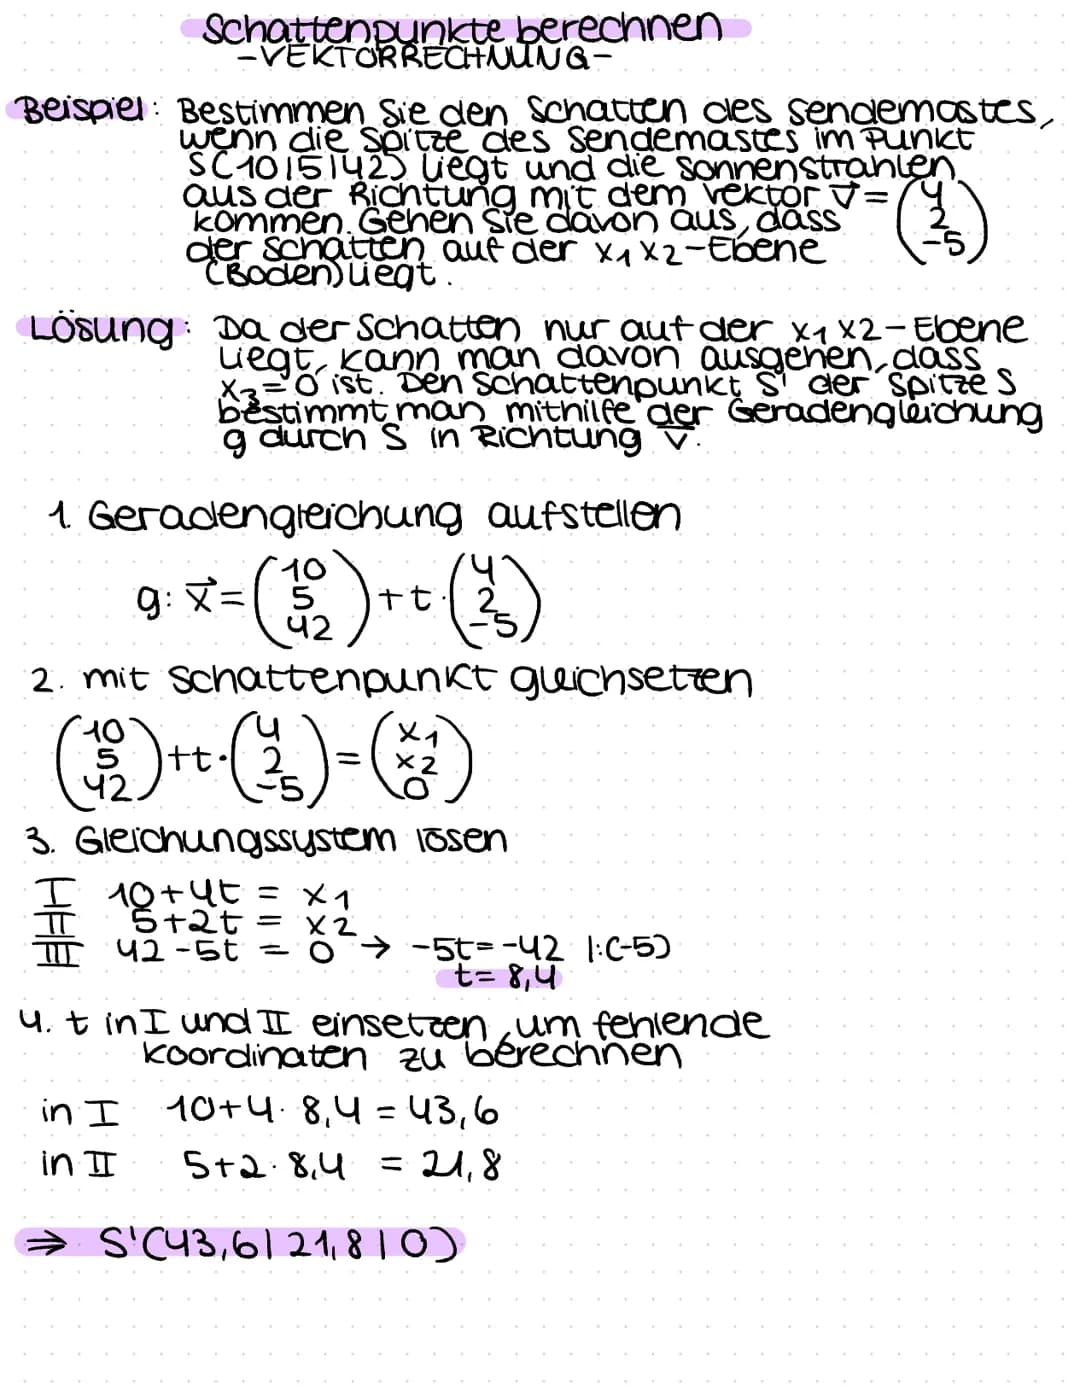 Schattenpunkte berechnen
-VEKTORRECHNUNG-
Beispiel: Bestimmen Sie den Schatten des Sendemastes,
wenn die Spitze des Sendemastes im Punkt
S(10|5|42) liegt und die Sonnenstrahlen
aus der Richtung mit dem Vektor v⃗ = (4 2 -5)
kommen. Gehen Sie davon aus, dass
der Schatten auf der x₁x₂-Ebene
(Boden) liegt.
Lösung: Da der Schatten nur auf der x₁x₂-Ebene
liegt, kann man davon ausgehen, dass
x₃=0 ist. Den Schattenpunkt S' der Spitze S
bestimmt man mithilfe der Geradengleichung
g durch S in Richtung v⃗.
1. Geradengleichung aufstellen
g: x⃗ = (10 5 42) + t · (4 2 -5)
2. mit Schattenpunkt gleichsetzen
(10 5 42) + t · (4 2 -5) = (x₁ x₂ 0)
3. Gleichungssystem lösen
I 10+4t = x₁
II 5+2t = x₂
III 42-5t = 0 → -5t=-42 |:(-5)
t= 8,4
4. t in I und II einsetzen, um fehlende
Koordinaten zu berechnen
in I 10+4· 8,4 = 43,6
in II 5+2· 8,4 = 21,8
⇒ S'(43,6|21,8|0)